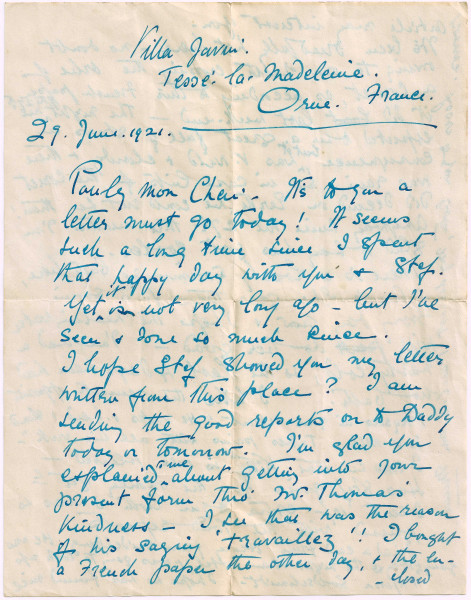 Villa Jarvin.
Tessé. la. Madeleine.
Orne. France.
29. June. 1921.
Pauly mon Cheri - It's to you a
letter must go today! It seems
such a long time since I spent
that happy day with you & Stef.
Yet it is not very long ago - but I've
seen & done so much since.
I hope Stef showed you my letter
written from this place? I am
sending the good reports on to Daddy
today or tomorrow. I'm glad you
explained to me about getting into your
present form thro' Mr. Thomas'
kindness - I see that was the reason
of his saying "travaillez"!! I bought
a French paper the other day, & the en-
-closed